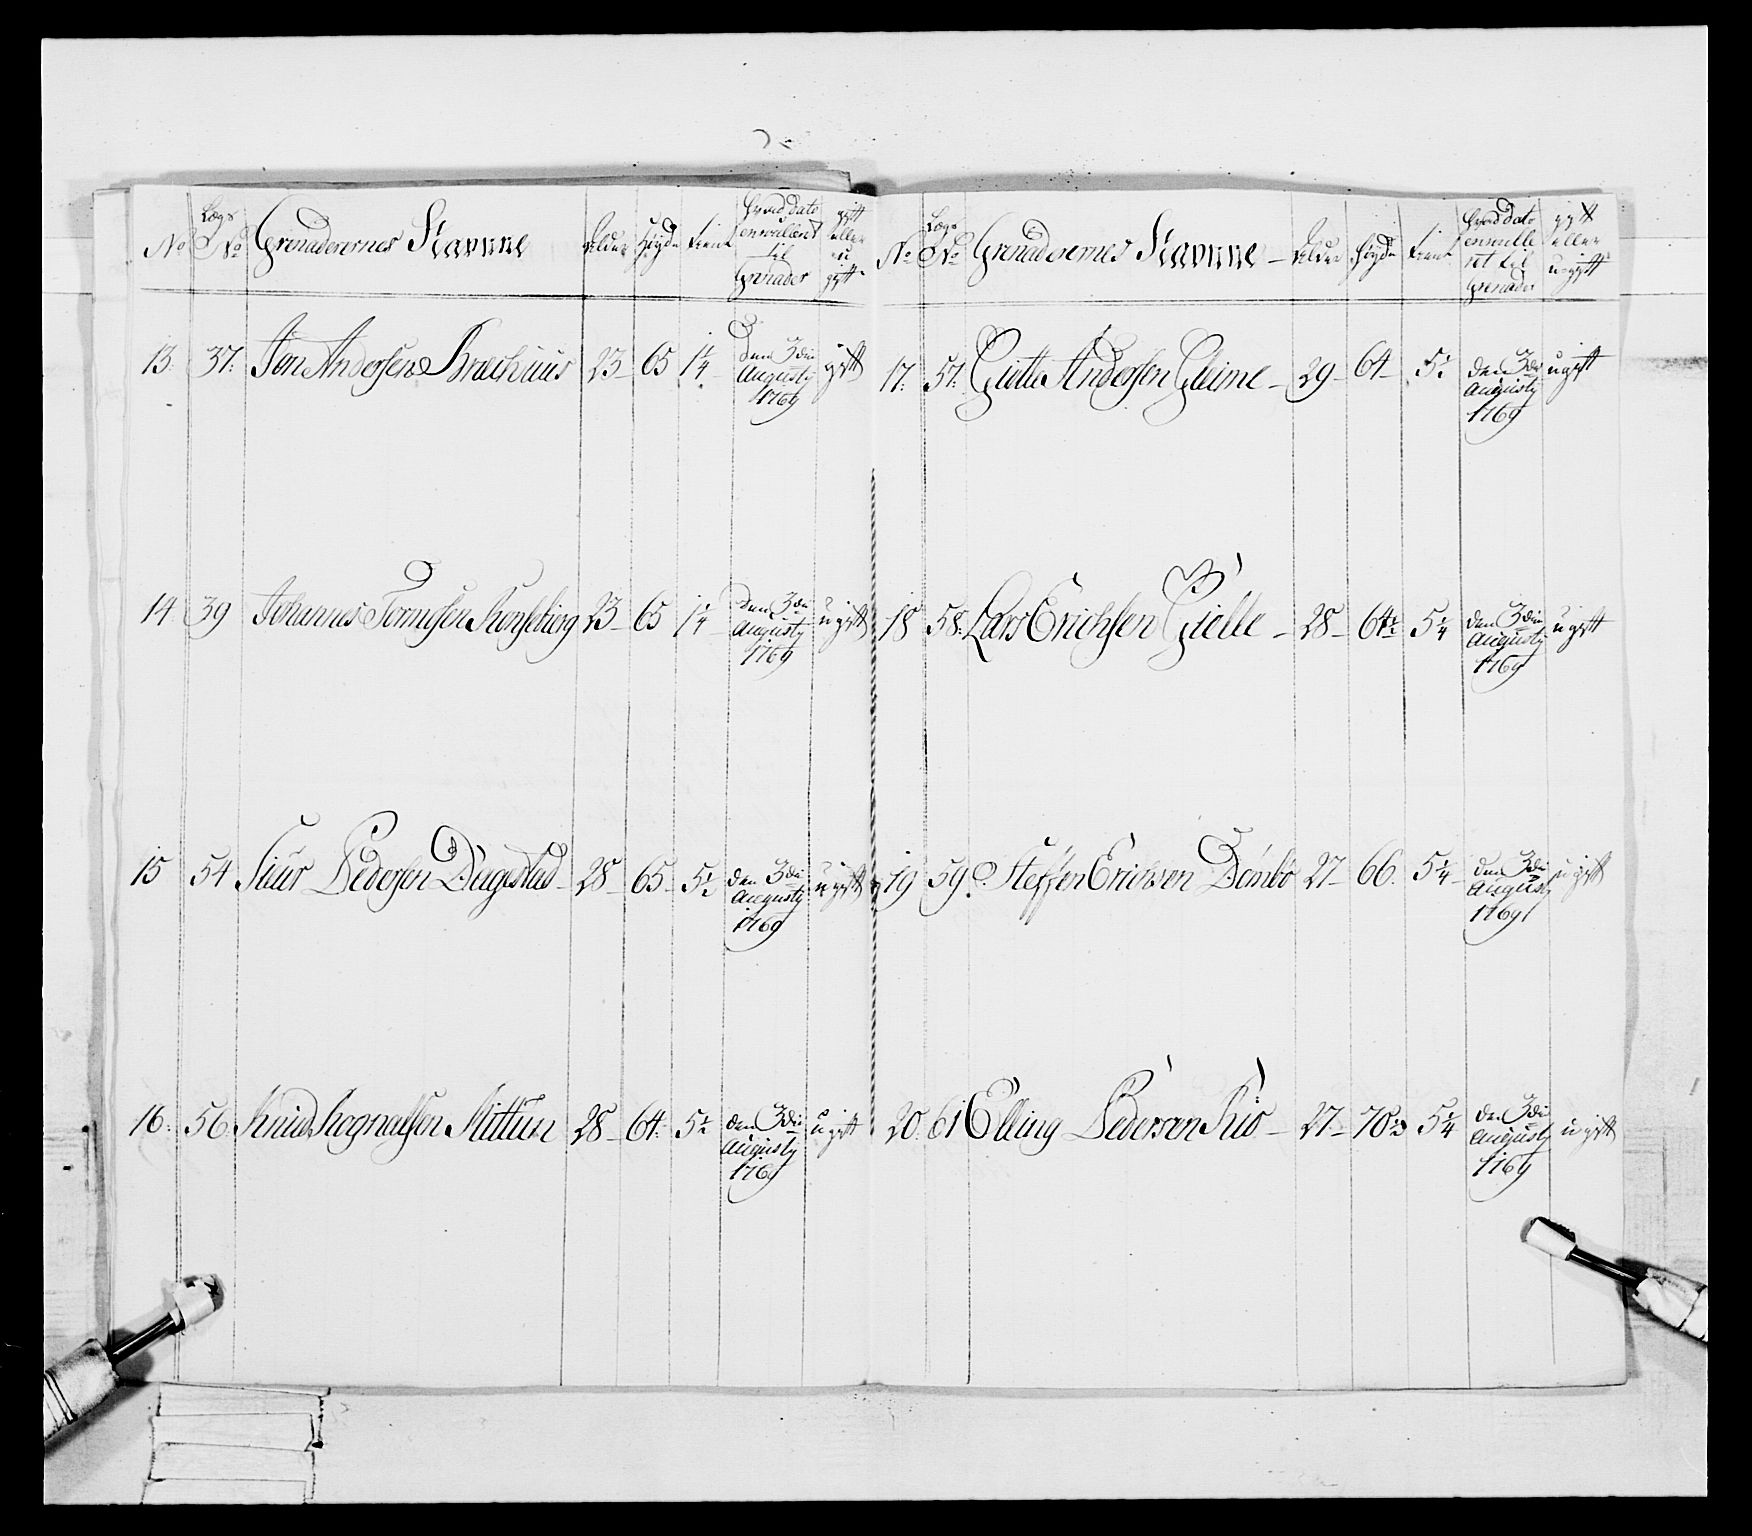 No Lægs No Grenaderernes Navne Alder Høyde tient hvad dato enroulleret til Grenader gift eller u gift
13. 37. Jon Andersen Bræchuus 23 65 1¼ den 3die Augusty 1769 gift
14 39 Johannes Tormosen 23 65 1¼ den 3die Augusty 1769 ugift
15 54 Siur Pedersen Dugestad 28 65 5½ den 3die Augusty 1769 ugift
16. 56 Knud Rognalsen Kittun 28 64. 5½ den 3die Augusty 1769 ugift
No Lægs No Grenaderernes Navne Alder Høyde tient hvad dato enroulleret til Grenader gift eller u gift
17. 57. Giutte Andersen Gleime 29 64 5½ den 3die Augusty 1769 ugift
18 58. Lars Erichsen Gielle 28 64½ 5¼ den 3die Augusty 1769 ugift
19 59. Steffen Erichsen Dømbø 27 66. 5¼ den 3die Augusty 1769 ugift
20. 61 Elling Pedersen 27 70½ 5¼ den 3die Augusty 1769 ugift